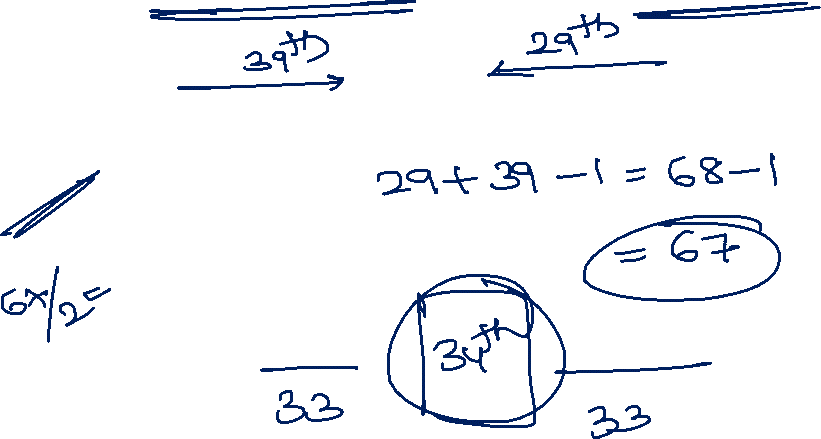 39th 29th
29 + 39 - 1 = 68 - 1
= 67
34th
33 33